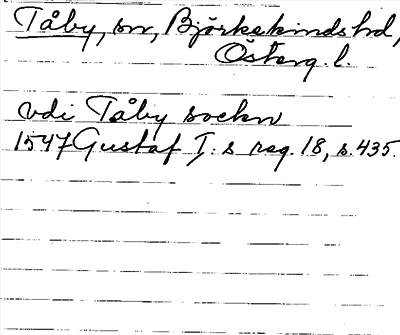 Tåby, sn, Björkekinds hd,
Österg. l.
vdi Tåby sockn
1547 Gustaf I:s reg. 18, s. 435.